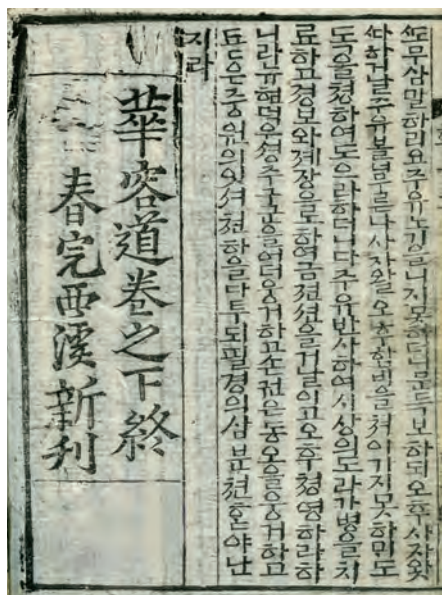 ᄯᅩ무삼말하리요주유노긔을니지못하더니문득보하되오후사자왓
다하거날주유불너무르니사자왈오후합비을쳐이기지못하ᄆᆡ도
독을쳥하여도으라하더니다주유반사하여시상의도라가병을치
료하고경보와졔장으로하여곰젼션을거날이고오후쳥영하라하
니라유현덕은셩주 어더웅거하고손권은동오을웅거하고
됴됴은즁원의잇셔쳔하을다투되필경의삼분쳔 야난
지라
華容道卷之下終
春完西溪新刊